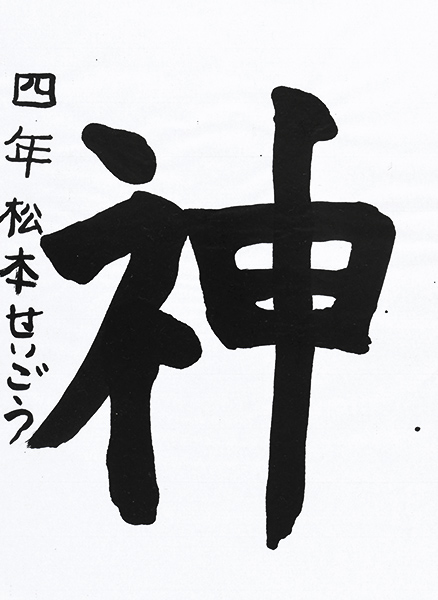 神
四年 松本せいごう